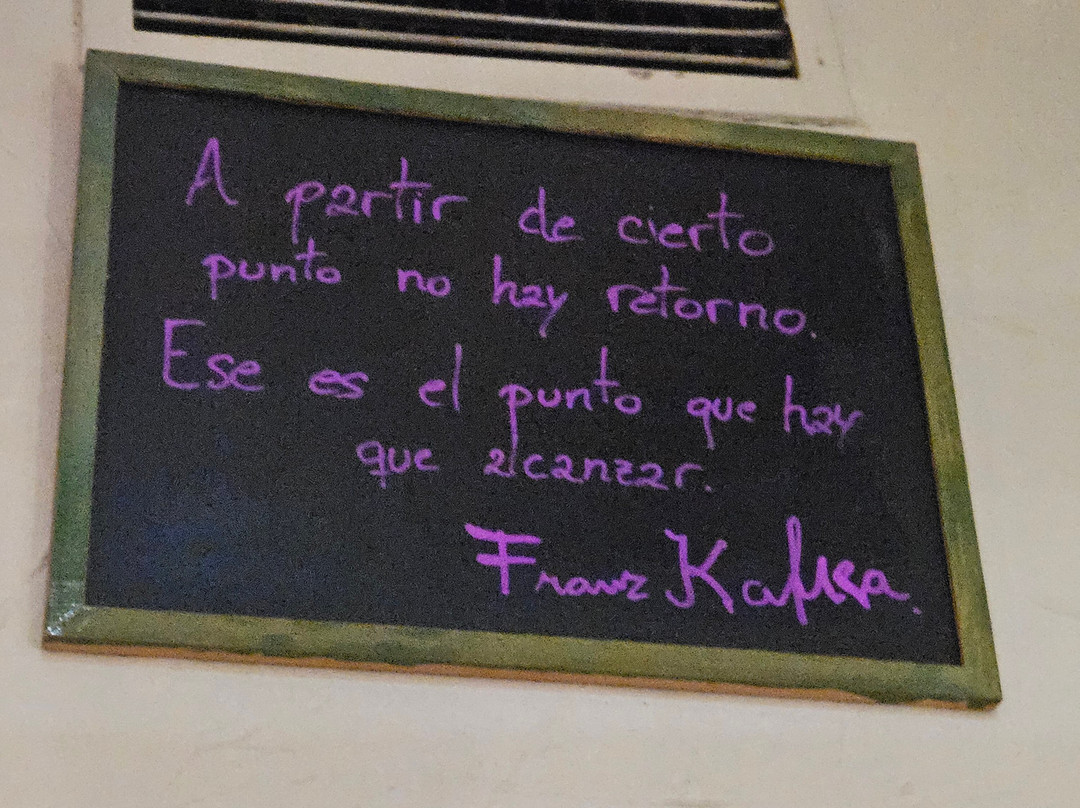 A partir de cierto
punto no hay retorno.
Ese es el punto que hay
que alcanzar.
Franz Kafka.